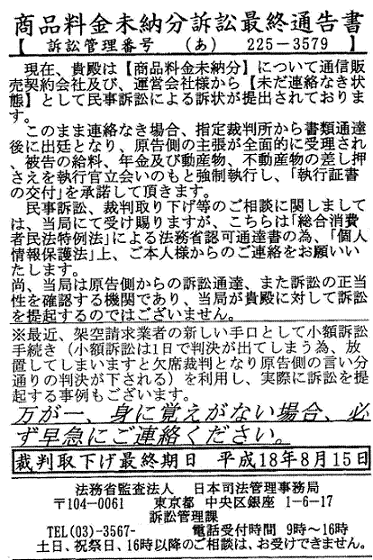 商品料金未納分訴訟最終通告書
【 訴訟管理番号 (あ) 225-3579 】
現在、貴殿は【商品料金未納分】について通信販
売契約会社及び、運営会社様から【未だ連絡なき状
態】として民事訴訟による訴状が提出されておりま
す。
このまま連絡なき場合、指定裁判所から書類通達
後に出廷となり、原告側の主張が全面的に受理され
、被告の給料、年金及び動産物、不動産物の差し押
さえを執行官立会いのもと強制執行し、「執行証書
の交付」を承諾して頂きます。
民事訴訟、裁判取り下げ等のご相談に関しまして
は、当局にて受け賜りますが、こちらは「総合消費
者民法特例法」による法務省認可通達書の為、「個人
情報保護法」上、ご本人様からのご連絡をお願いい
たします。
尚、当局は原告側からの訴訟通達、また訴訟の正当
性を確認する機関であり、当局が貴殿に対して訴訟
を提起するのではございません。
※最近、架空請求業者の新しい手口として小額訴訟
手続き(小額訴訟は1日で判決が出てしまう為、放
置してしまいますと欠席裁判となり原告側の言い分
通りの判決が下される)を利用し、実際に訴訟を提
起する事例もございます。
万が一、身に覚えがない場合、必
ず早急にご連絡ください。
裁判取下げ最終期日 平成18年8月15日
法務省監査法人 日本司法管理事務局
〒104-0061 東京都 中央区銀座 1-6-17
訴訟管理課
TEL(03)-3567- 電話受付時間 9時～16時
土日、祝祭日、16時以降のご相談は、お受けできません。